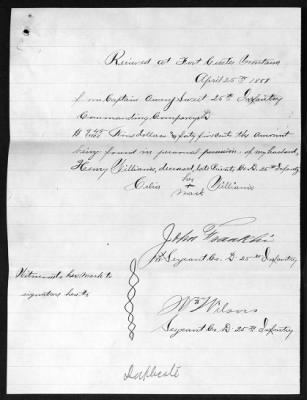 Received at Fort Custer Montana
April 25th 1889
from Captain Owen J Sweet 25th Infantry
Commanding Company D
$ 9 45/100 Nine dollars & forty five cents the amount
being found in personal possession of my husband,
Henry Williams, deceased, late Private Co. D. 25th Infantry
her
Celia + Williams
mark
John Franklin
1st Sergeant Co. D 25th Infantry
Witnesses to her mark to
signature hereto
Wm Wilson
Sergeant Co. D. 25th Infantry
Duplicate